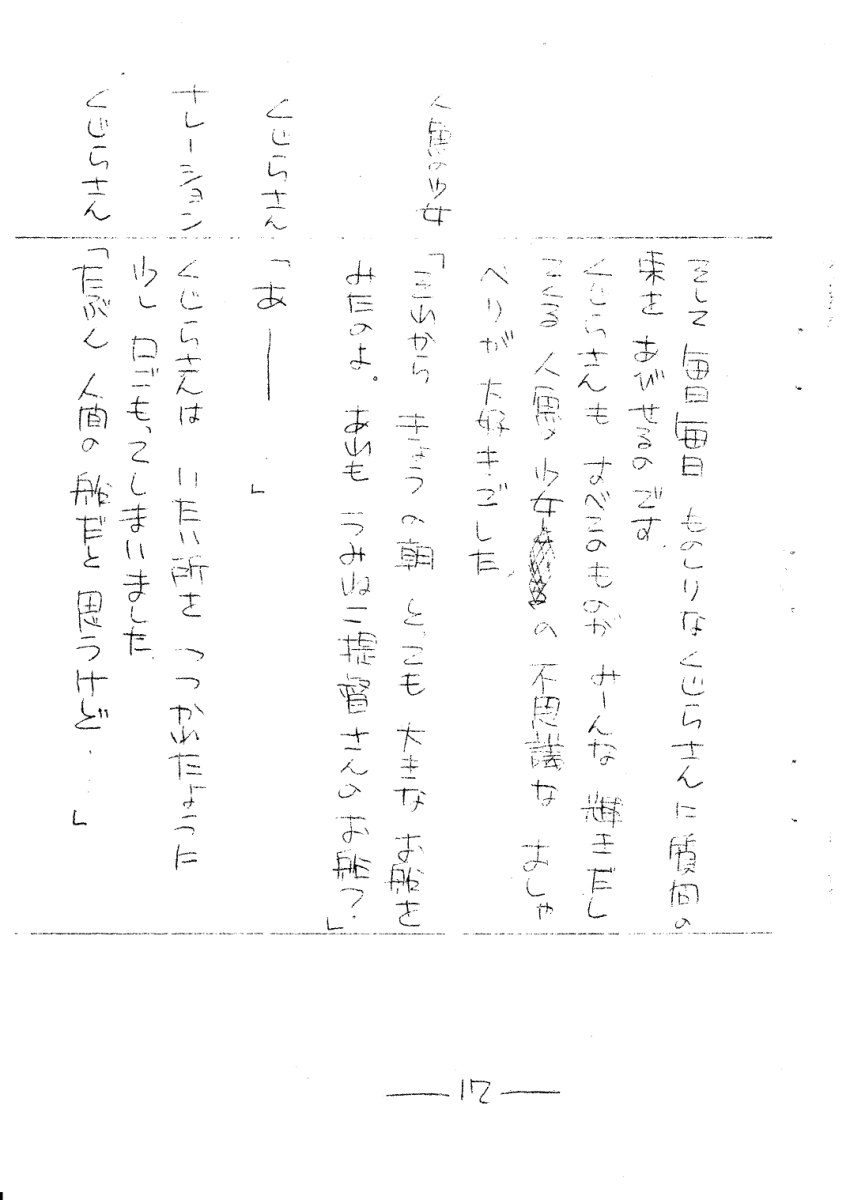 そして 毎日毎日 ものしりなくじらさんに質問の
束を あびせるのです。
くじらさんも すべてのものが みーんな 輝きだし
てくる 人魚の少女の 不思議な おしゃ
べりが 大好きでした。
人魚の少女 「それから きょうの朝 とっても 大きな お船を
みたのよ。あれも うみねこ提督さんのお船?」
くじらさん 「あ――……」
ナレーション くじらさんは いたい所を つつかれたように
少し 口ごもってしまいました。
くじらさん 「たぶん 人間の 船だと 思うけど……」
―― 17 ――